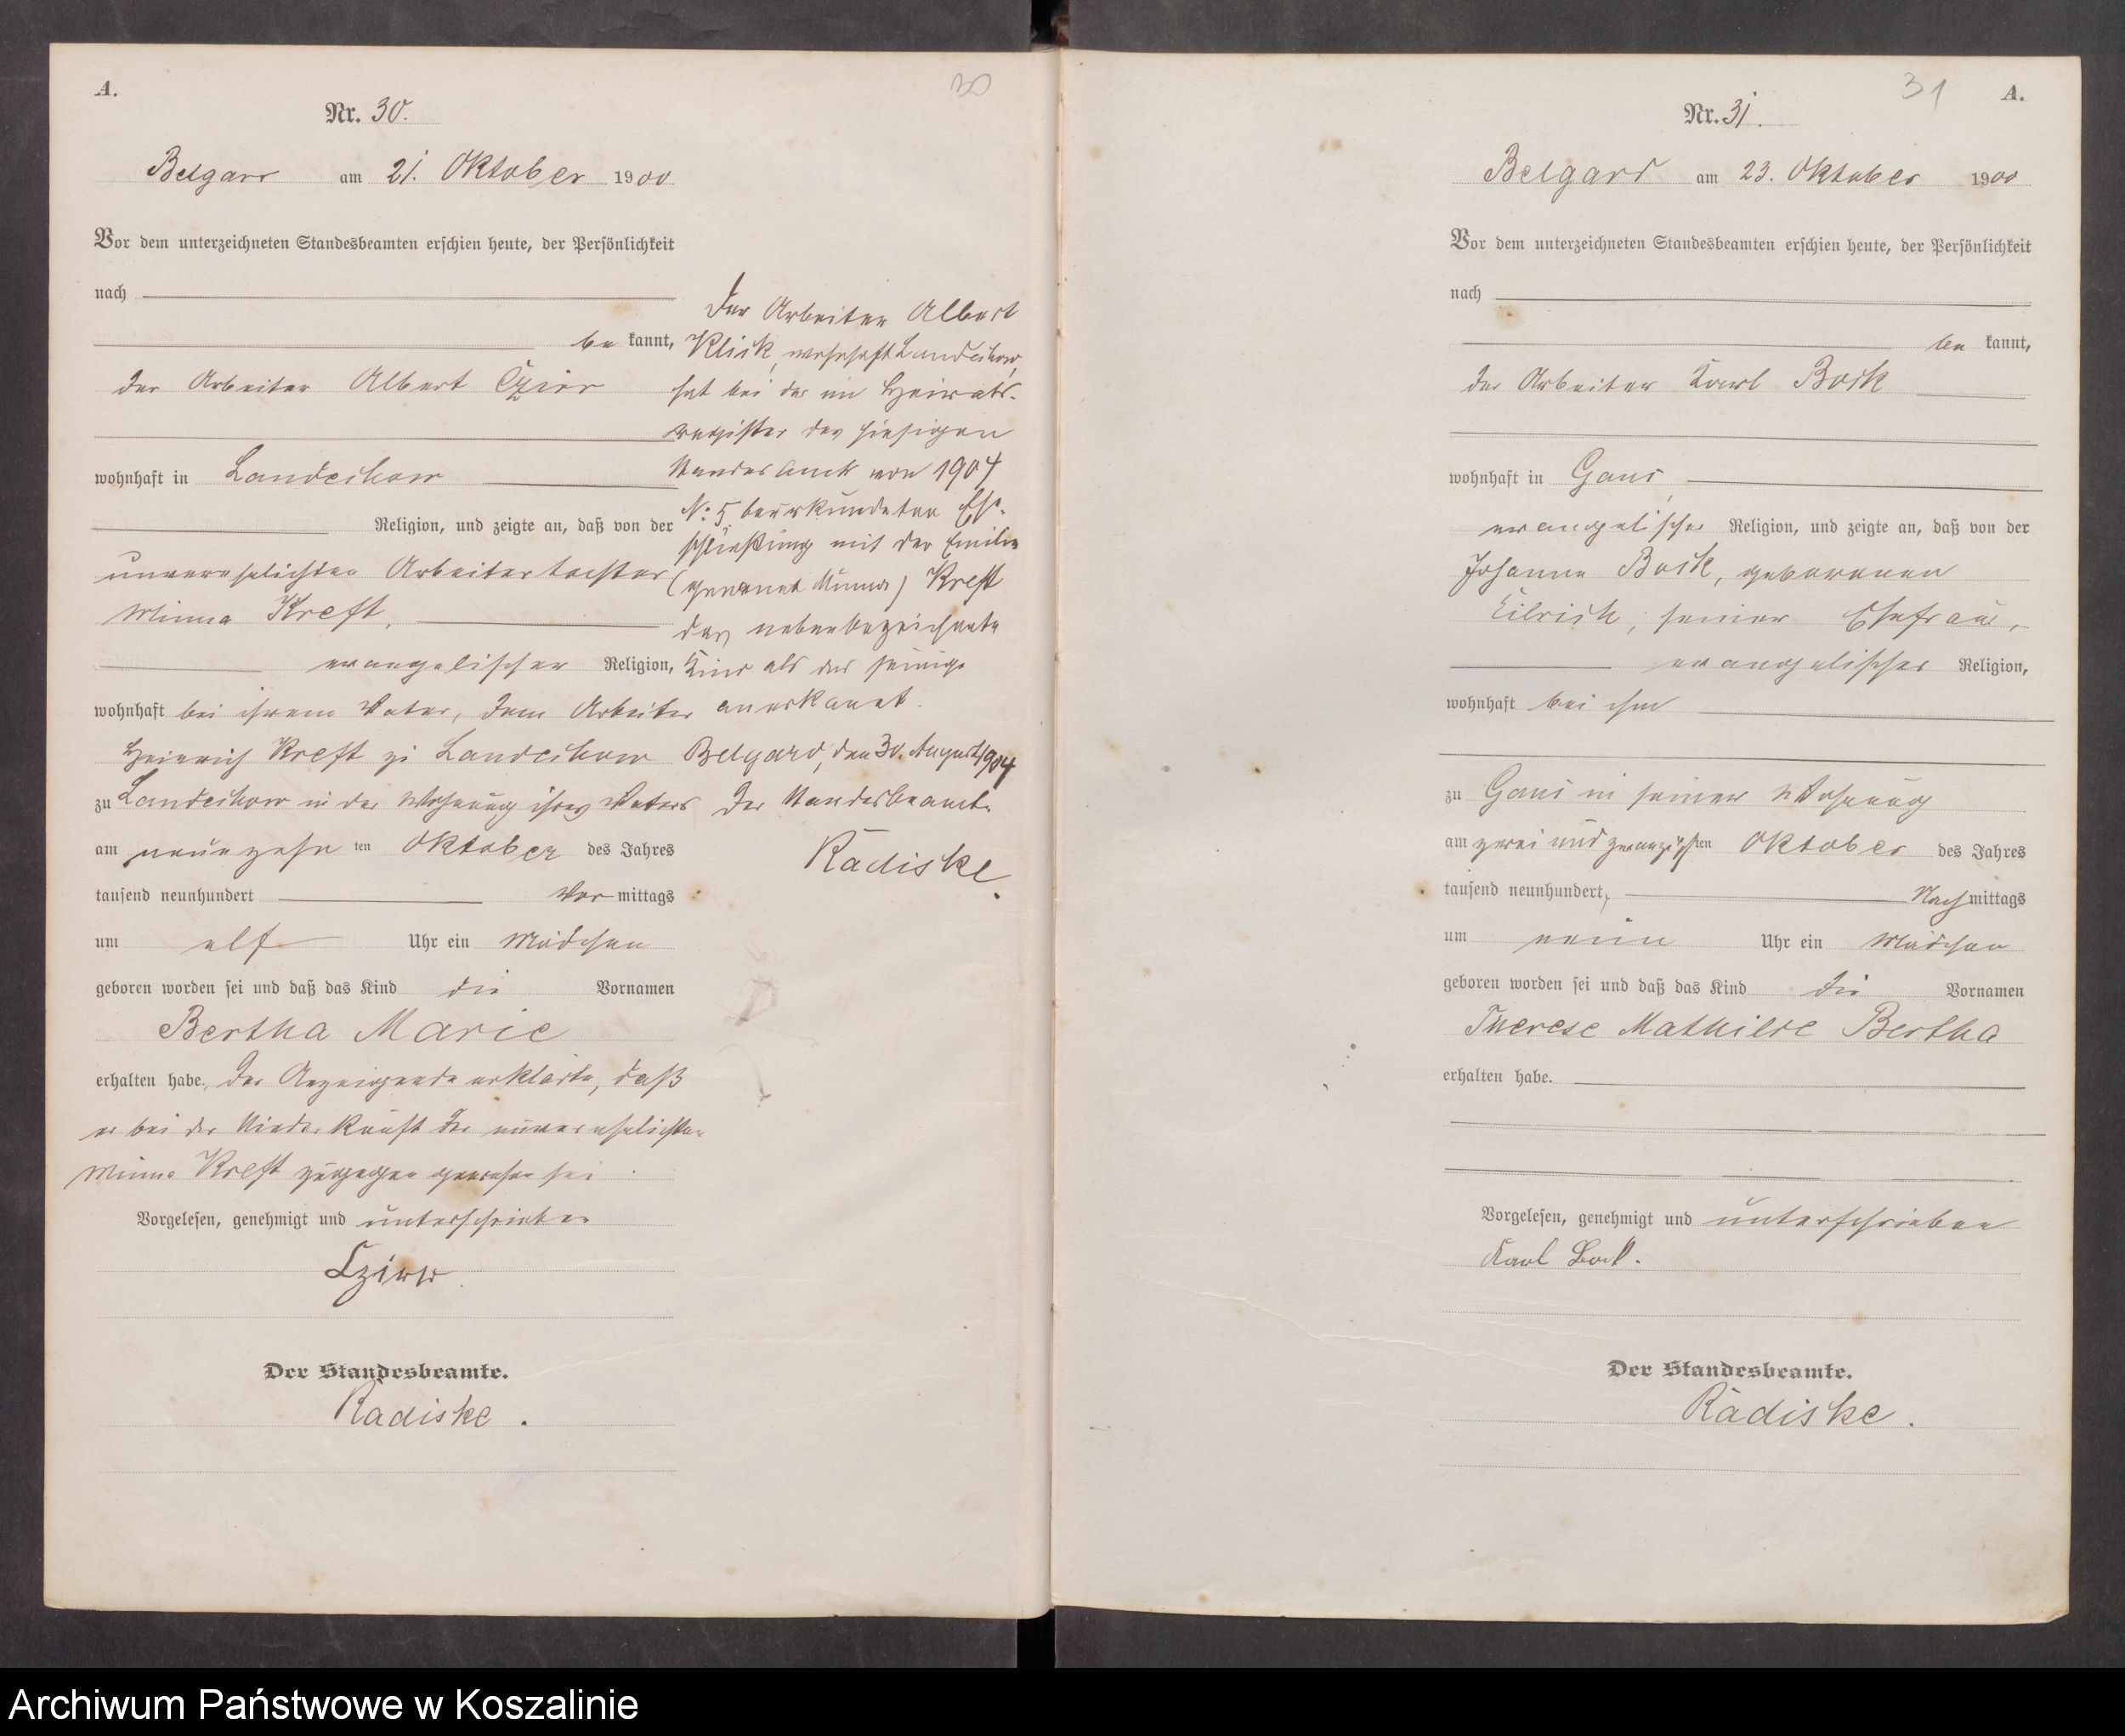 A.
30
Nr. 30.
Belgard am 21. Oktober 1900
Vor dem unterzeichneten Standesbeamten erschien heute, der Persönlichkeit
nach
be kannt,
der Arbeiter Albert
wohnhaft in Landechow
Religion, und zeigte an, daß von der
unverehelichten Arbeitertochter
Minna Kreft,
evangelischer Religion,
wohnhaft bei ihrem Vater, dem Arbeiter
Heinrich Kreft zu Landechow
zu Landechow in der Wohnung ihres Vaters
am neunzehn ten Oktober des Jahres
tausend neunhundert Vor mittags
um elf Uhr ein Mädchen
geboren worden sei und daß das Kind die Vornamen
Bertha Marie
erhalten habe. Der Anzeigende erklärte, daß
er bei der Niederkunft der unverehelichten
Minna Kreft zugegen gewesen sei.
Vorgelesen, genehmigt und unterschrieben
Der Standesbeamte.
Radiske.
Der Arbeiter Albert
Klick, wohnhaft Landechow,
hat bei der im Heirats-
register des hiesigen
Standesamts von 1904
N: 5 beurkundeten Ehe-
schließung mit der Emilie
(genannt Minna) Kreft
das nebenbezeichnete
Kind als das seinige
anerkannt.
Belgard, den 30. August 1904
Der Standesbeamte
Radiske.
31
A.
Nr. 31.
Belgard am 23. Oktober 1900
Vor dem unterzeichneten Standesbeamten erschien heute, der Persönlichkeit
nach
be kannt,
der Arbeiter Karl Bock
wohnhaft in Gans,
evangelischer Religion, und zeigte an, daß von der
Johanne Bock, geborenen
seiner Ehefrau,
evangelischer Religion,
wohnhaft bei ihm
zu Gans in seiner Wohnung
am zwei und zwanzigsten Oktober des Jahres
tausend neunhundert, Nach mittags
um neun Uhr ein Mädchen
geboren worden sei und daß das Kind die Vornamen
Therese Mathilde Bertha
erhalten habe.
Vorgelesen, genehmigt und unterschrieben
Karl Bock.
Der Standesbeamte.
Radiske.
Archiwum Państwowe w Koszalinie